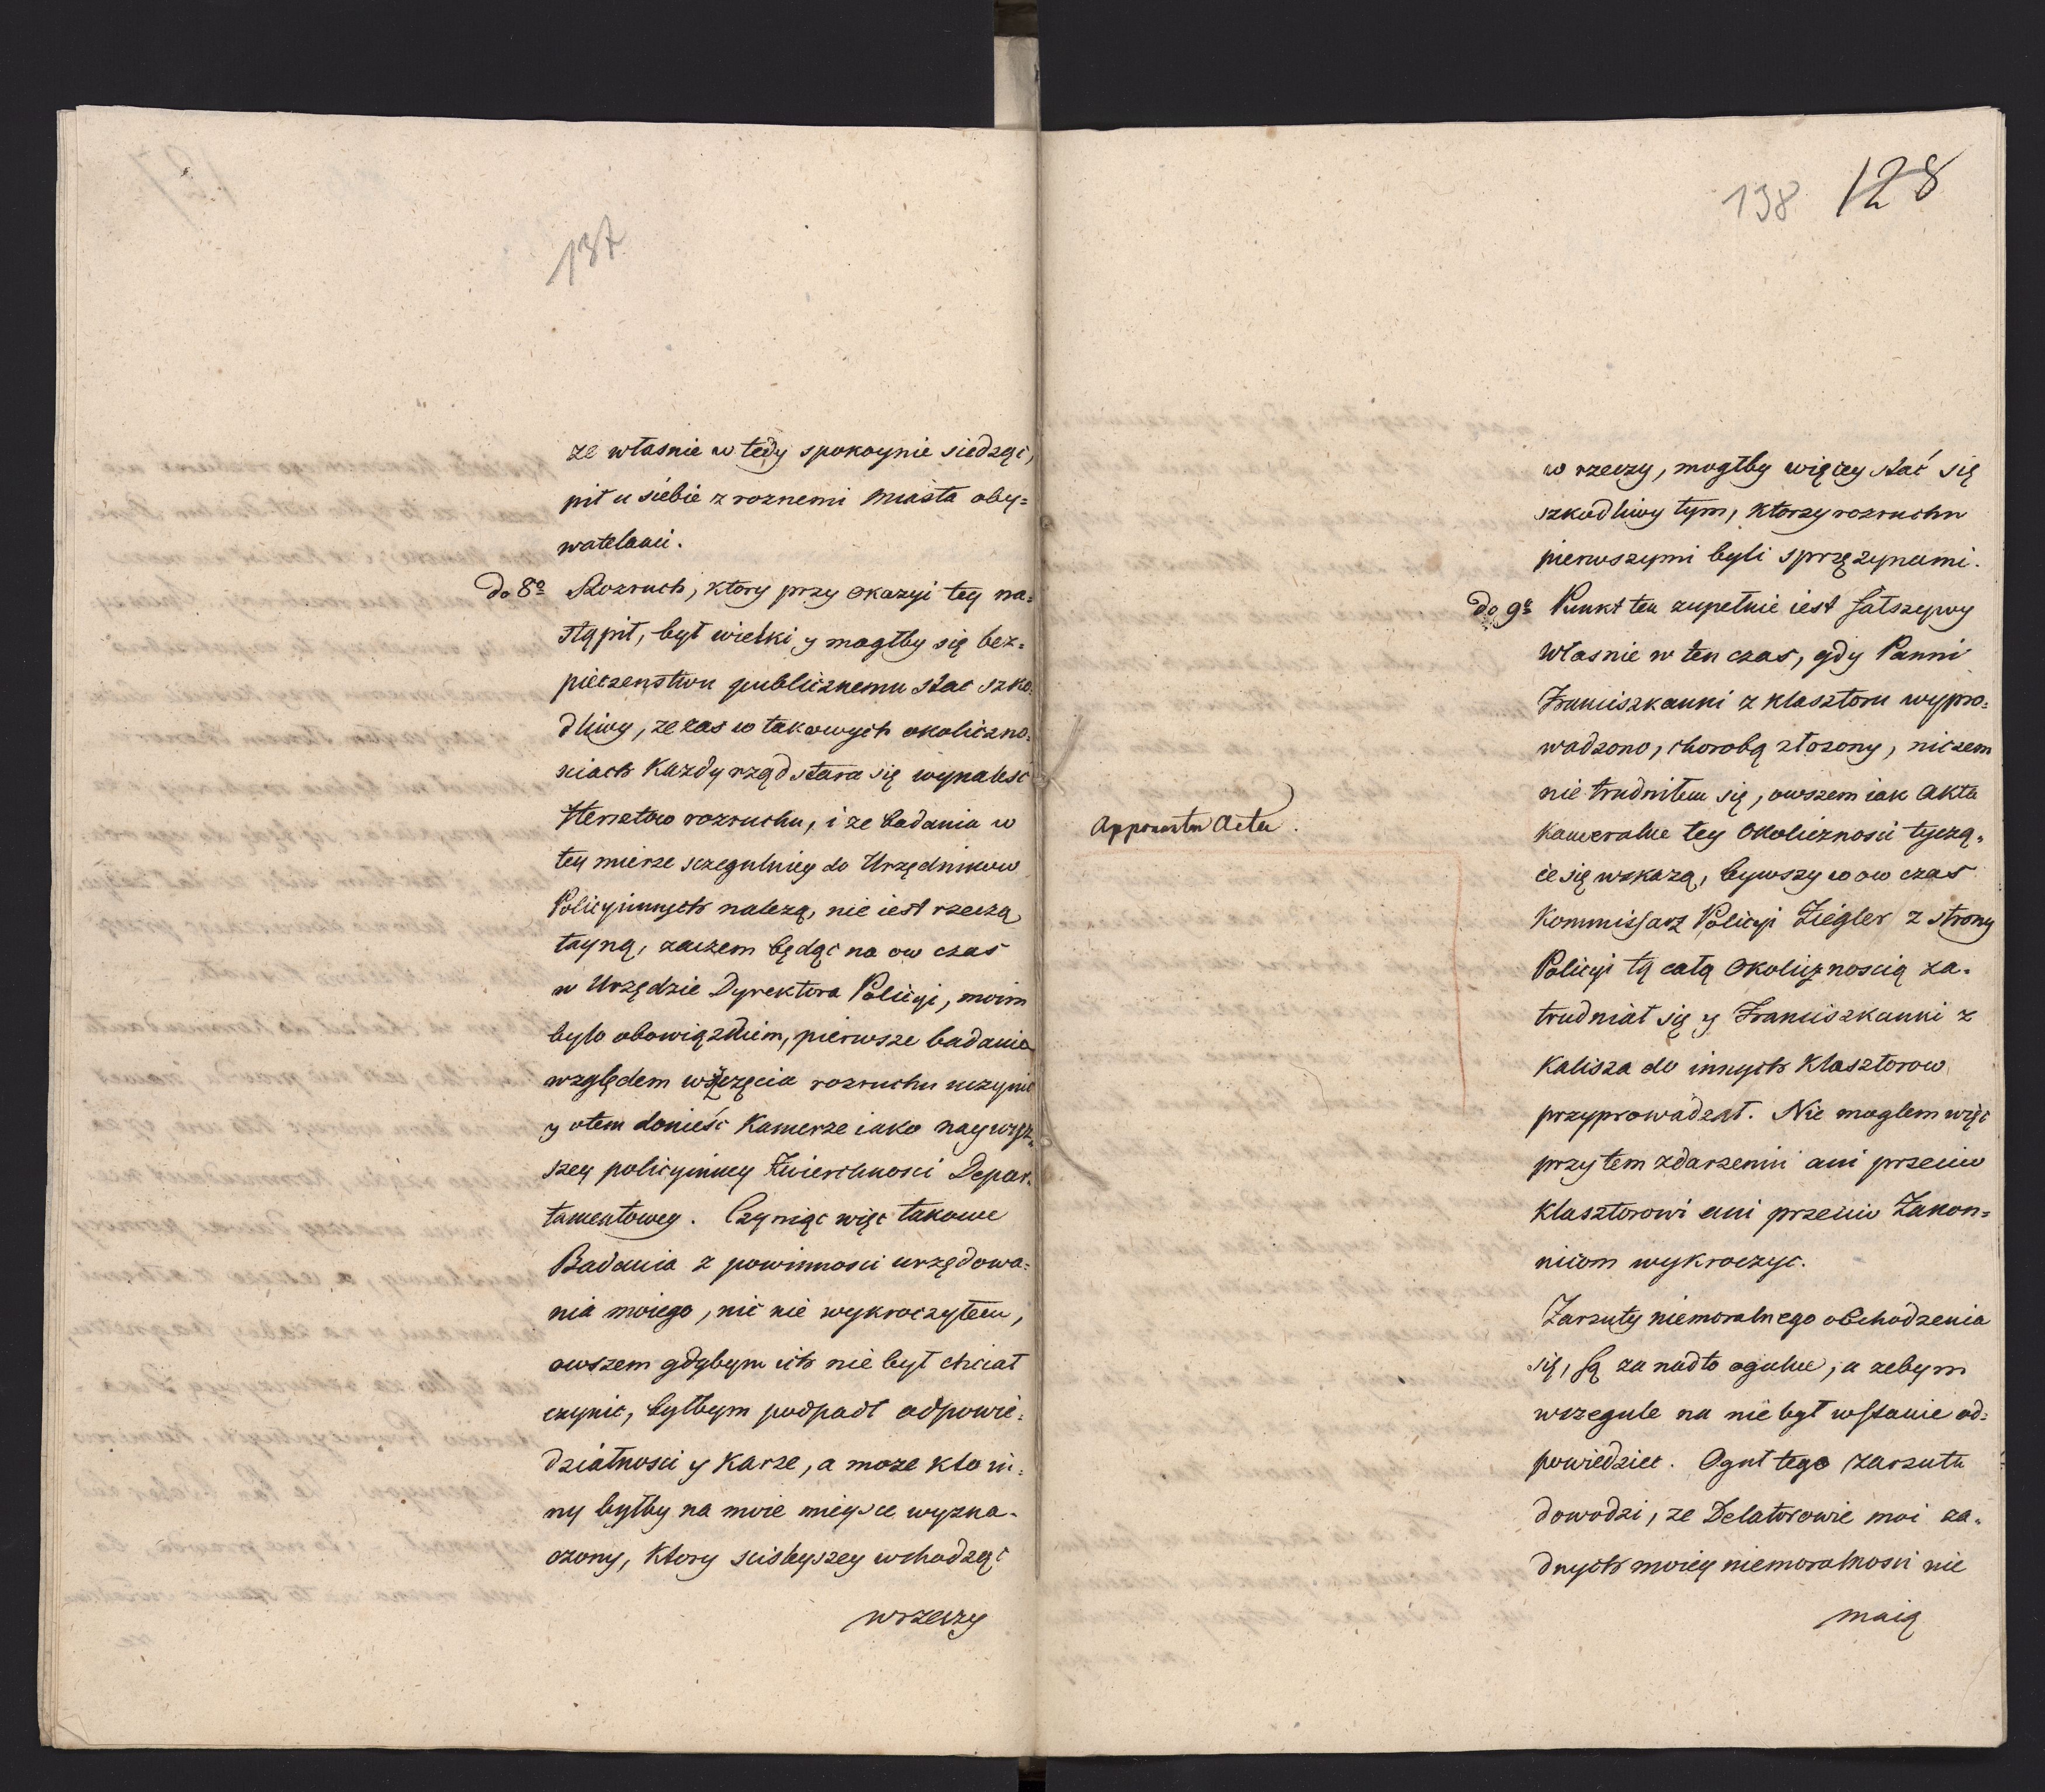 137
ze własnie w tedy spokoynie siedząc,
pił u siebie z roznemi Miasta oby=
watelami.
do 8º Rozruch, ktory przy okazyi tey na=
stąpił, był wielki y mogłby się bez=
pieczenstwu publicznemu stać szko=
dliwy, ze zas w takowych okoliczno=
sciach kazdy rząd stara się wynalesc
rozruchu, i ze badania w
tey mierze sczegulniey do Urzędnikow
Policyinnych nalezą, nie iest rzeczą
tayną, zaczem będąc na ow czas
w Urzędzie Dyrektora Policyi, moim
bylo obowiązkiem, pierwsze badanie
względem wszczęcia rozruchu uczynic
y otem donieść Kamerze iako naywyz=
szey policyinney Zwierchnosci Depar=
tamentowey. Czyniąc więc takowe
Badania z powinnosci urzędowa=
nia moiego, nic nie wykroczyłem,
owszem gdybym ich nie był chciał
czynic, byłbym podpadł odpowie=
działnosci y karze, a moze kto in=
ny byłby na moie mieysce wyzna=
czony, ktory scisleyszey wchodząc
wrzeczy
138 128
w rzeczy, mogłby więcey stać się
szkodliwy tym, ktorzy rozruchu
pierwszymi byli sprzęzynami.
do 9º Punkt ten zupełnie iest fałszywy
Własnie w ten czas, gdy Panni
Franciszkanki z klasztoru wypro=
wadzono, chorobą złozony, niczem
nie trudniłem się, owszem iak Akta
Kameralne tey Okolicznosci tyczą=
ce się wskazą, bywszy w ow czas
Kommissarz Policyi Ziegler z strony
Policyi tą całą Okolicznoscią za=
trudniał się y Franciszkanki z
Kalisza do innych Klasztorow
przyprowadzał. Nie moglem więc
przy tem zdarzeniu ani przeciw
Klasztorowi ani przeciw Zakon=
nicom wykroczyc.
Zarzuty niemoralnego obchodzenia
się, są za nadto ogulne, a zebym
wszegule na nie był wstanie od=
powiedziec. Oguł tego zarzutu
dowodzi, ze Delatorowie moi za=
dnych moiey niemoralnosci nie
maią
Acta.